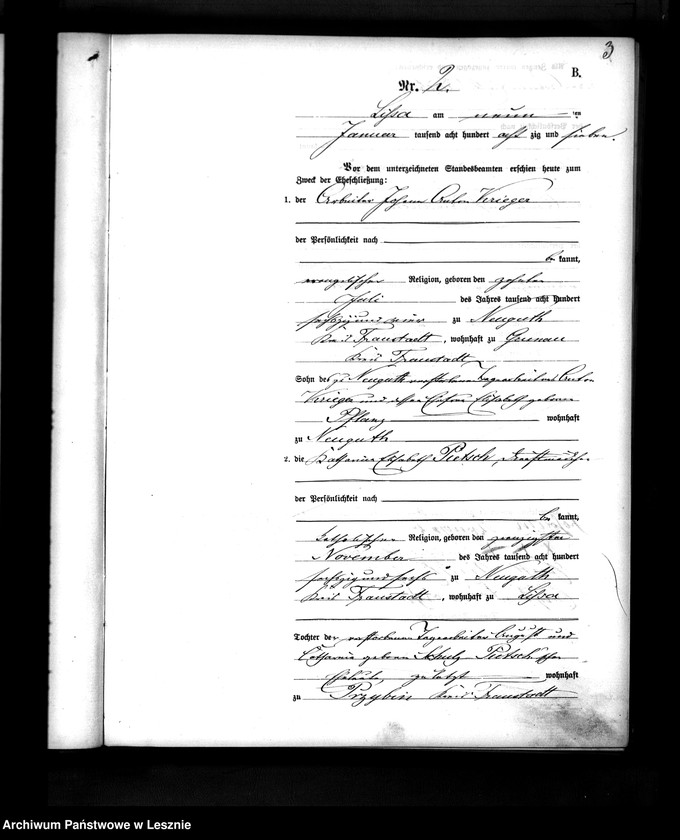 3
B.
Nr. 2.
Lissa am neun ten
Januar tausend acht hundert acht zig und sieben.
Vor dem unterzeichneten Standesbeamten erschien heute zum
Zweck der Eheschließung:
1. der Arbeiter Johann Anton Krieger
der Persönlichkeit nach
be kannt,
evangelischer Religion, geboren den zehnten
Juli des Jahres tausend acht hundert
sechzig und vier zu Neuguth
Kreis Fraustadt, wohnhaft zu
Kreis Fraustadt
Sohn des zu Neuguth verstorbenen Tagearbeiters Anton
Krieger und dessen Ehefrau Elisabeth geborene
Pflanz wohnhaft
zu Neuguth
2. die Katharina Elisabeth Pietsch, Dienstmädchen
der Persönlichkeit nach
be kannt,
katholischer Religion, geboren den zwanzigsten
November des Jahres tausend acht hundert
sechzig und sechs zu Neuguth
Kreis Fraustadt, wohnhaft zu Lissa
Tochter der verstorbenen Tagearbeiter August und
Catharina geborene Schulz Pietsch'schen
Eheleute, zuletzt wohnhaft
zu Przybin Kreis Fraustadt
Archiwum Państwowe w Lesznie